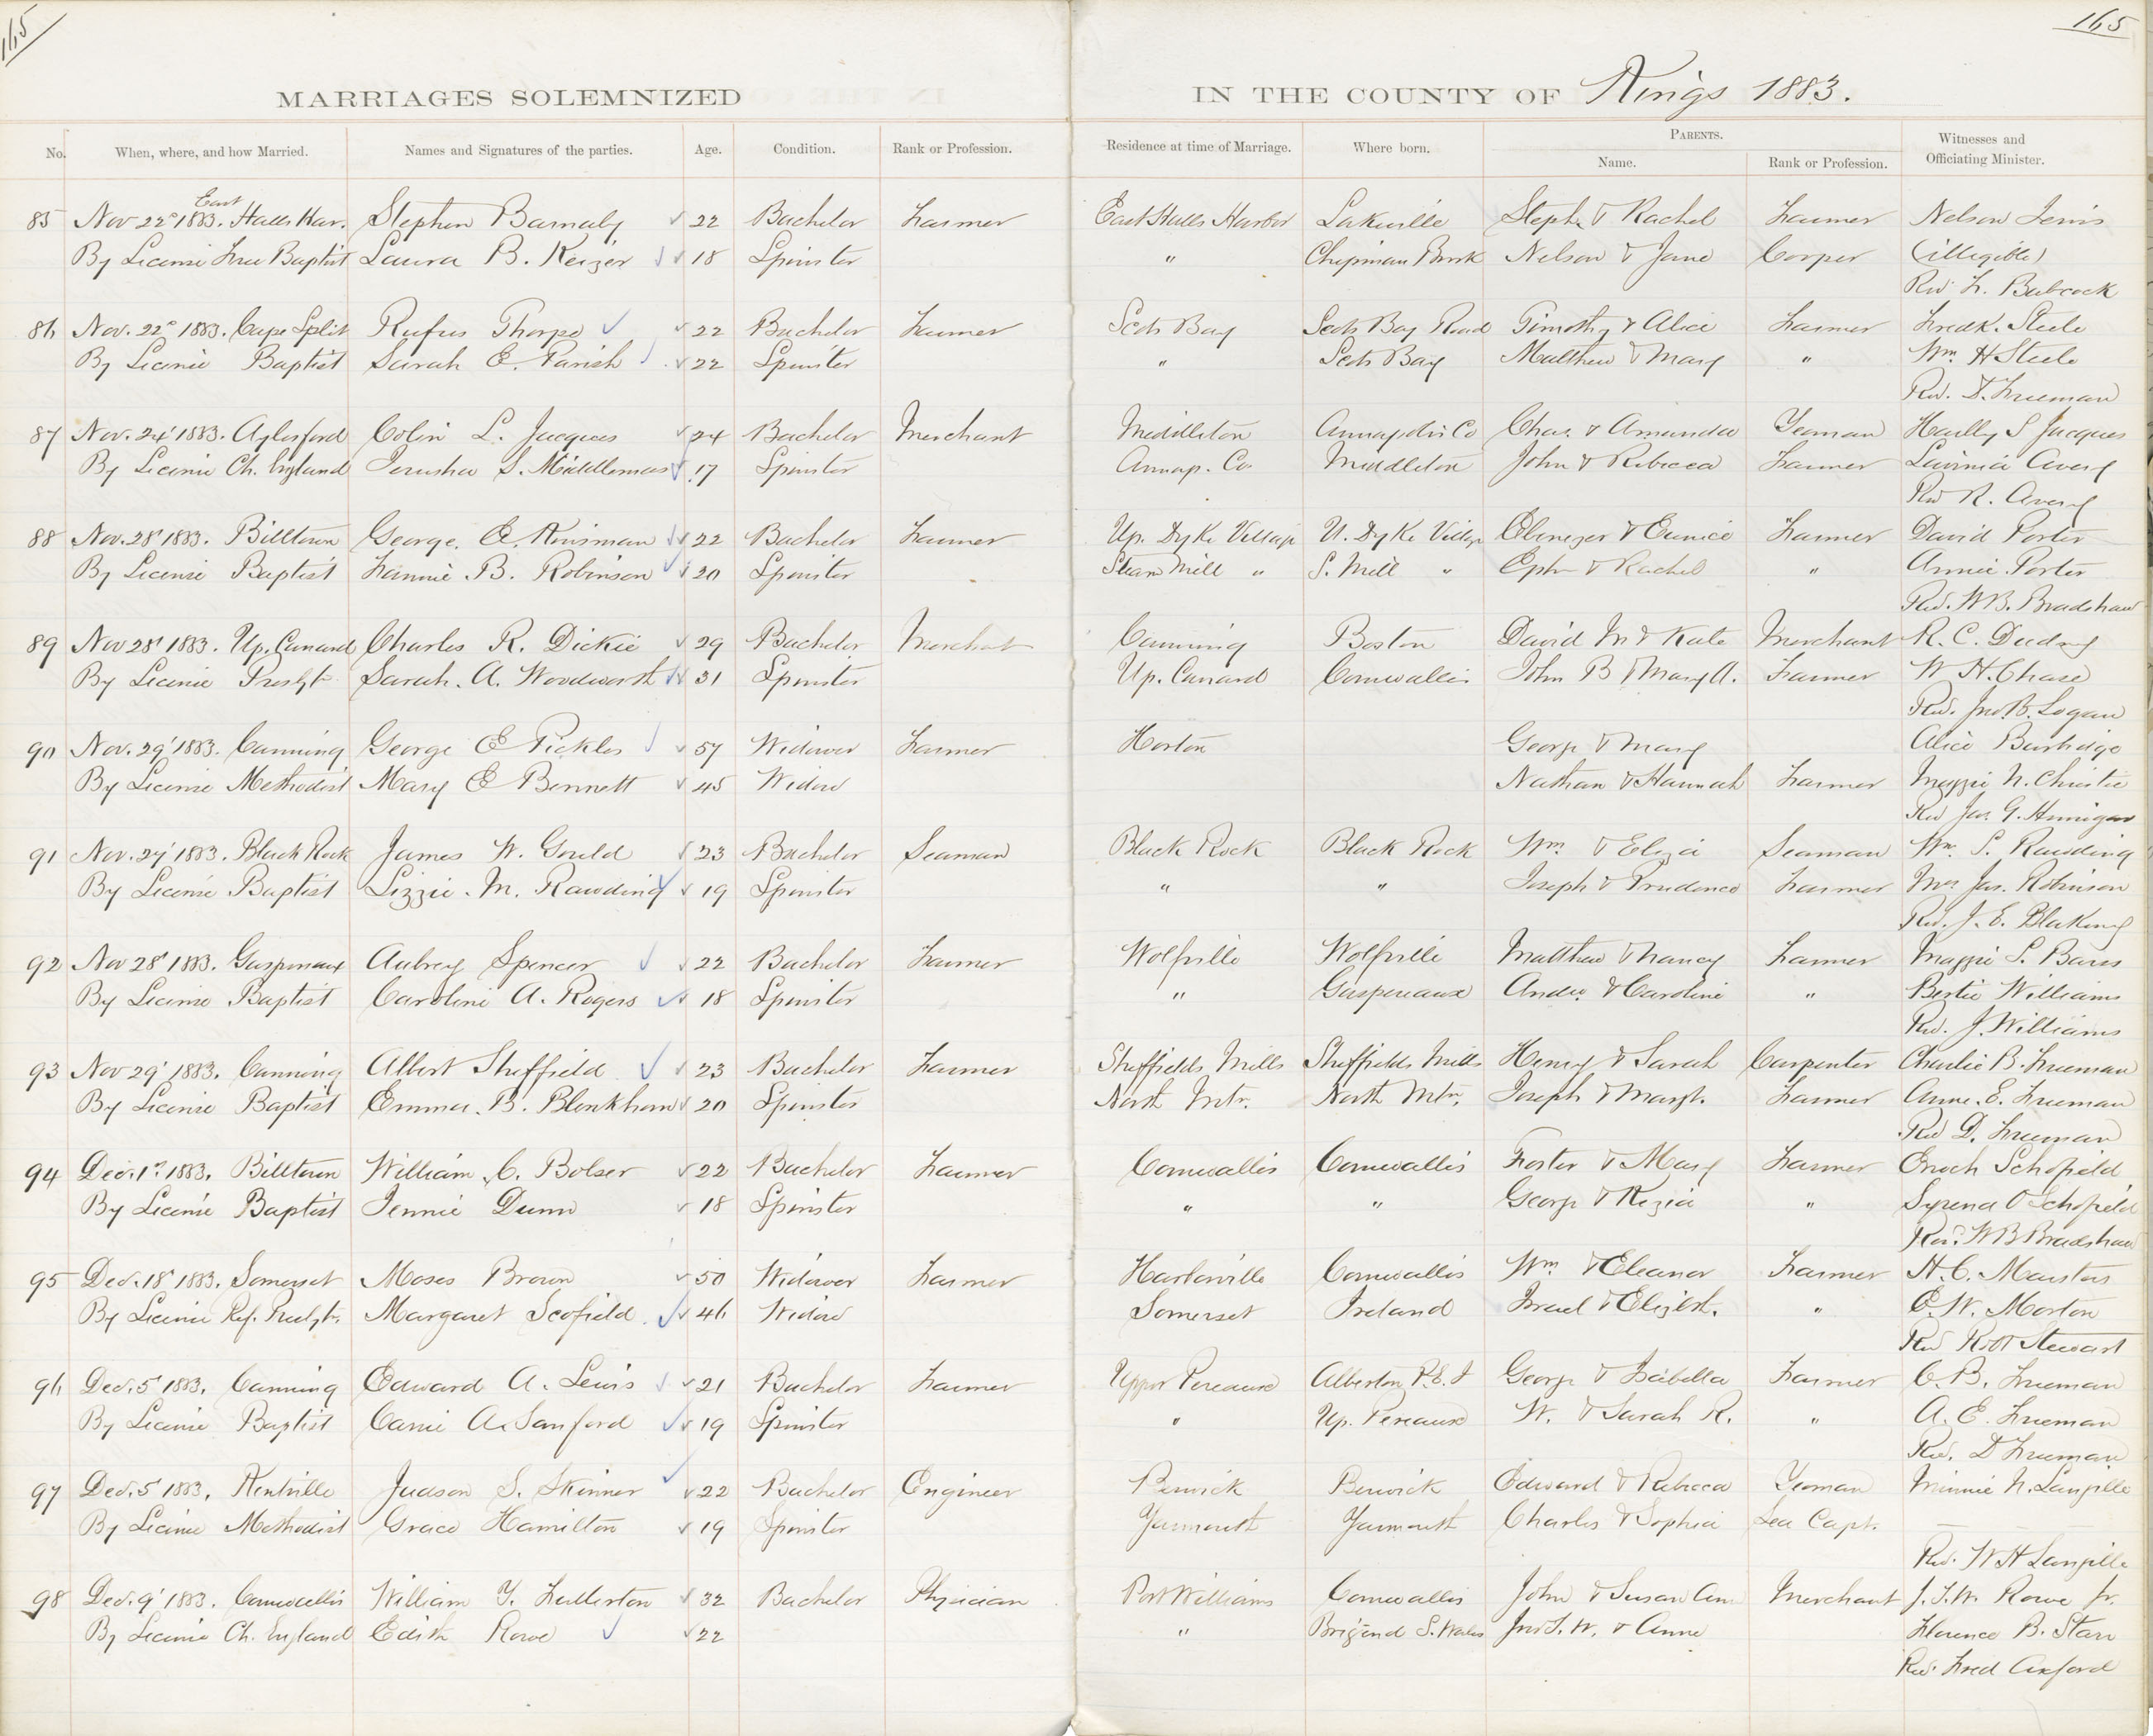 165 165
MARRIAGES SOLEMNIZED IN THE COUNTY OF Kings 1883.
No. When, where, and how Married. Names and Signatures of the parties. Age. Condition. Rank or Profession. Residence at time of Marriage. Where born. PARENTS. Name. Rank or Profession. Witnesses and Officiating Minister.
East
85 Nov 22d 1883. Halls Har. Stephen Barnaby 22 Bachelor Farmer East Halls Harbor Lakeville Steph. & Rachel Farmer Nelson
By License Free Baptist Laura B. Keizer 18 Spinster " Chipman Brook Nelson & Jane Cooper (illegible)
Rev. F. Babcock
86 Nov. 22d 1883. Cape Split Rufus Thorpe 22 Bachelor Farmer Scots Bay Scots Bay Road Timothy & Alice Farmer Fredk. Steele
By License Baptist Sarah E. Parish 22 Spinster " Scots Bay Matthew & Mary " Wm. H Steele
Rev. D. Freeman
87 Nov. 24' 1883. Aylesford Colin L. Jacques 24 Bachelor Merchant Middleton Annapolis Co Chas. & Amanda Yeoman S Jacques
By License Ch. England Jerusha S. Middlemas 17 Spinster Annap. Co. Middleton John & Rebecca Farmer Lavinia Avery
Rev R. Avery
88 Nov. 28' 1883. Billtown George. E. Kinsman 22 Bachelor Farmer Up. Dyke Village U. Dyke Village Ebenezer & Eunice Farmer David Porter
By License Baptist Fannie B. Robinson 20 Spinster Steam Mill " S. Mill " Ephm & Rachel " Annie Porter
Rev. W B. Bradshaw
89 Nov 28' 1883. Up. Canard Charles R. Dickie 29 Bachelor Merchant Canning Boston David M & Kate Merchant R. C. Dudney
By License Presbytn Sarah. A. Woodworth 31 Spinster Up. Canard Cornwallis John B & Mary A. Farmer W H. Chase
Rev. Jno. B. Logan
90 Nov. 29' 1883. Canning George E Pickles 57 Widower Farmer Horton George & Mary Alice Burbidge
By License Methodist Mary E Bennett 45 Widow Nathan & Hannah Farmer Maggie N. Christie
Rev Jas. G. Hennigar
91 Nov. 27' 1883. Black Rock James W. Gould 23 Bachelor Seaman Black Rock Black Rock Wm. & Eliza Seaman Wm. S. Rawding
By License Baptist Lizzie. M. Rawding 19 Spinster " " Joseph & Prudence Farmer Mrs Jas. Robinson
Rev. J. E. Blakeny
92 Nov 28' 1883. Gaspereaux Aubrey Spencer 22 Bachelor Farmer Wolfville Wolfville Matthew & Nancy Farmer Maggie S. Bares
By License Baptist Caroline A. Rogers 18 Spinster " Gaspereaux Andw. & Caroline " Bertie Williams
Rev. J. Williams
93 Nov 29' 1883. Canning Albert Sheffield 23 Bachelor Farmer Sheffields Mills Sheffields Mills Henry & Sarah Carpenter Charlie B. Freeman
By License Baptist Emma. B. Blenkhorn 20 Spinster North Mtn. North Mtn. Joseph & Margt. Farmer Anne. E. Freeman
Rev D. Freeman
94 Dec. 1st. 1883. Billtown William C. Bolser 22 Bachelor Farmer Cornwallis Cornwallis Foster & Mary Farmer Enoch Schofield
By License Baptist Jennie Dunn 18 Spinster " " George & Kezia " Syrena O Schofield
Rev. W B Bradshaw
95 Dec. 18' 1883. Somerset Moses Brown 50 Widower Farmer Harborville Cornwallis Wm. & Eleanor Farmer H. C. Masters
By License Ref. Presbytn. Margaret Scofield 46 Widow Somerset Ireland Israel & Elizbt. " E. W. Morton
Rev Stewart
96 Dec. 5' 1883. Canning Edward A. Lewis 21 Bachelor Farmer Upper Pereaux Alberton P. E. I George & Isabella Farmer C. B. Freeman
By License Baptist Carrie A. Sanford 19 Spinster " Up. Pereaux W. & Sarah R. " A. E. Freeman
Rev. D Freeman
97 Dec. 5' 1883. Kentville Judson S. Skinner 22 Bachelor Engineer Berwick Berwick Edward & Rebecca Yeoman Minnie N. Langille
By License Methodist Grace Hamilton 19 Spinster Yarmouth Yarmouth Charles & Sophia Sea Capt. —
Rev. W H Langille
98 Dec. 9' 1883. Cornwallis William Y. Fullerton 32 Bachelor Physician Port Williams Cornwallis John & Susan Ann Merchant J. T. W. Rowe jr.
By License Ch. England Edith Rowe 22 " Brigend S. Wales Jno T. W. & Anne Florence B. Starr
Rev. Fred Axford